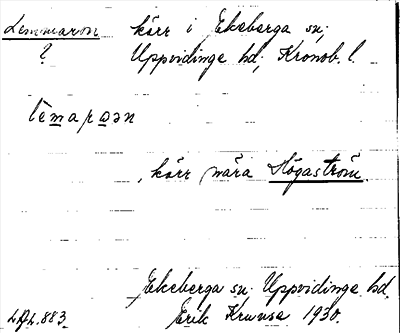 Lemmaron kärr i Ekeberga sn;
? Uppvidinge hd; Kronob. l.
lèmapɷən
, kärr nära Högaström.
Ekeberga sn. Uppvidinge hd.
L.A.L. 883. Erik Kruuse 1930.